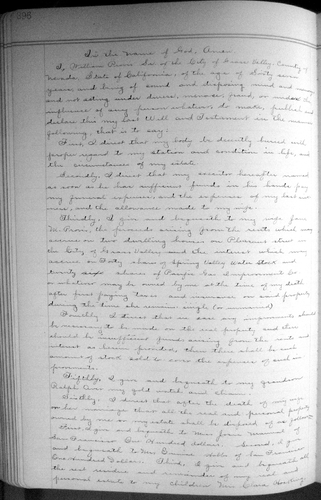 In the Name of God, Amen.
I, William of the City of Grass Valley, County of
Nevada, State of California, of the age of Sixty
years, and being of sound and disposing mind and memory,
and not acting under duress, menace, fraud, or undue
influence of any person whatever, do make, publish and
declare this my last Will and Testament in the manner
following, that is to say:
First, I direct that my body be decently buried with
proper regard to my station and condition in life, and
the circumstances of my estate
Secondly, I direct that my executor hereafter named
as soon as he has sufficient funds in his hands pay
my funeral expenses, and the expenses of my last sick-
ness, and the allowance made to my wife
Thirdly, I give and bequeath to my wife Jane
the proceeds arising from the rents which may
accrue on two dwelling houses on Pleasant street in
the City of Grass Valley and the interest which may
accrue on Forty shares Spring Valley Water Stock and
twenty shares of Pacific Gas Improvement Co
or whatever may be owned by me at the time of my death
after first paying taxes and insurance on said property
during the time she remains single (or unmarried)
Fourthly I direct that in case any improvements should
be necessary to be made on the real property and there
should be insufficient funds arising from the rents and
interest as before provided, then there shall be such an
amount of stock sold to cover the expenses of such im-
provements.
Fifthly, I give and bequeath to my grandson
Ralph my gold watch and chain
Sixthly, I direct that after the death of my wife
or her marriage then all the real and personal property
owned by me or my estate shall be disposed of as follows
First, I give and bequeath to of
San Francisco One Hundred dollars. Second, I give
and bequeath to Mrs of San Francisco
One Hundred Dollars. Third, I give and bequeath all
the rest residue and remainder of my real and
personal estate to my children Mrs